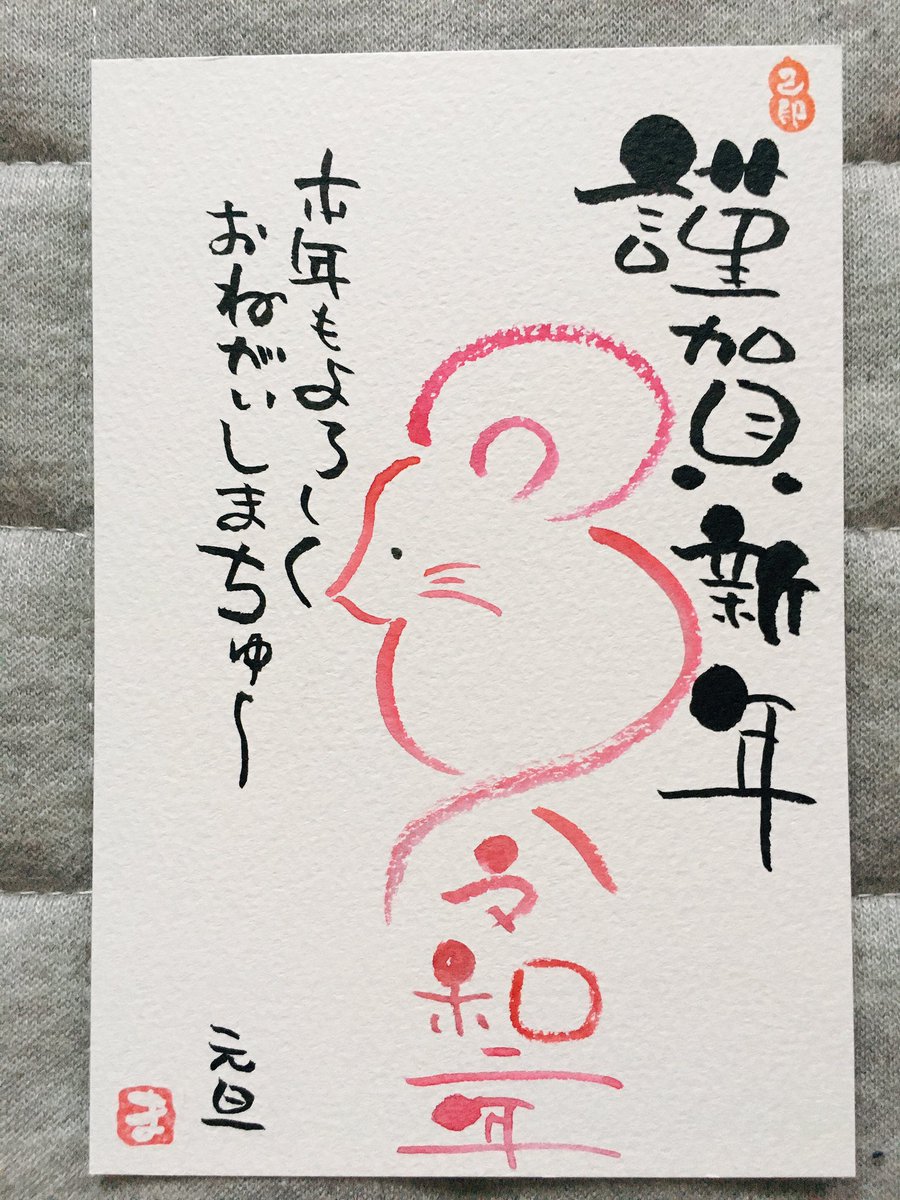 謹賀新年
令和二年
本年もよろしく
おねがいしまちゅ〜
元旦
ま